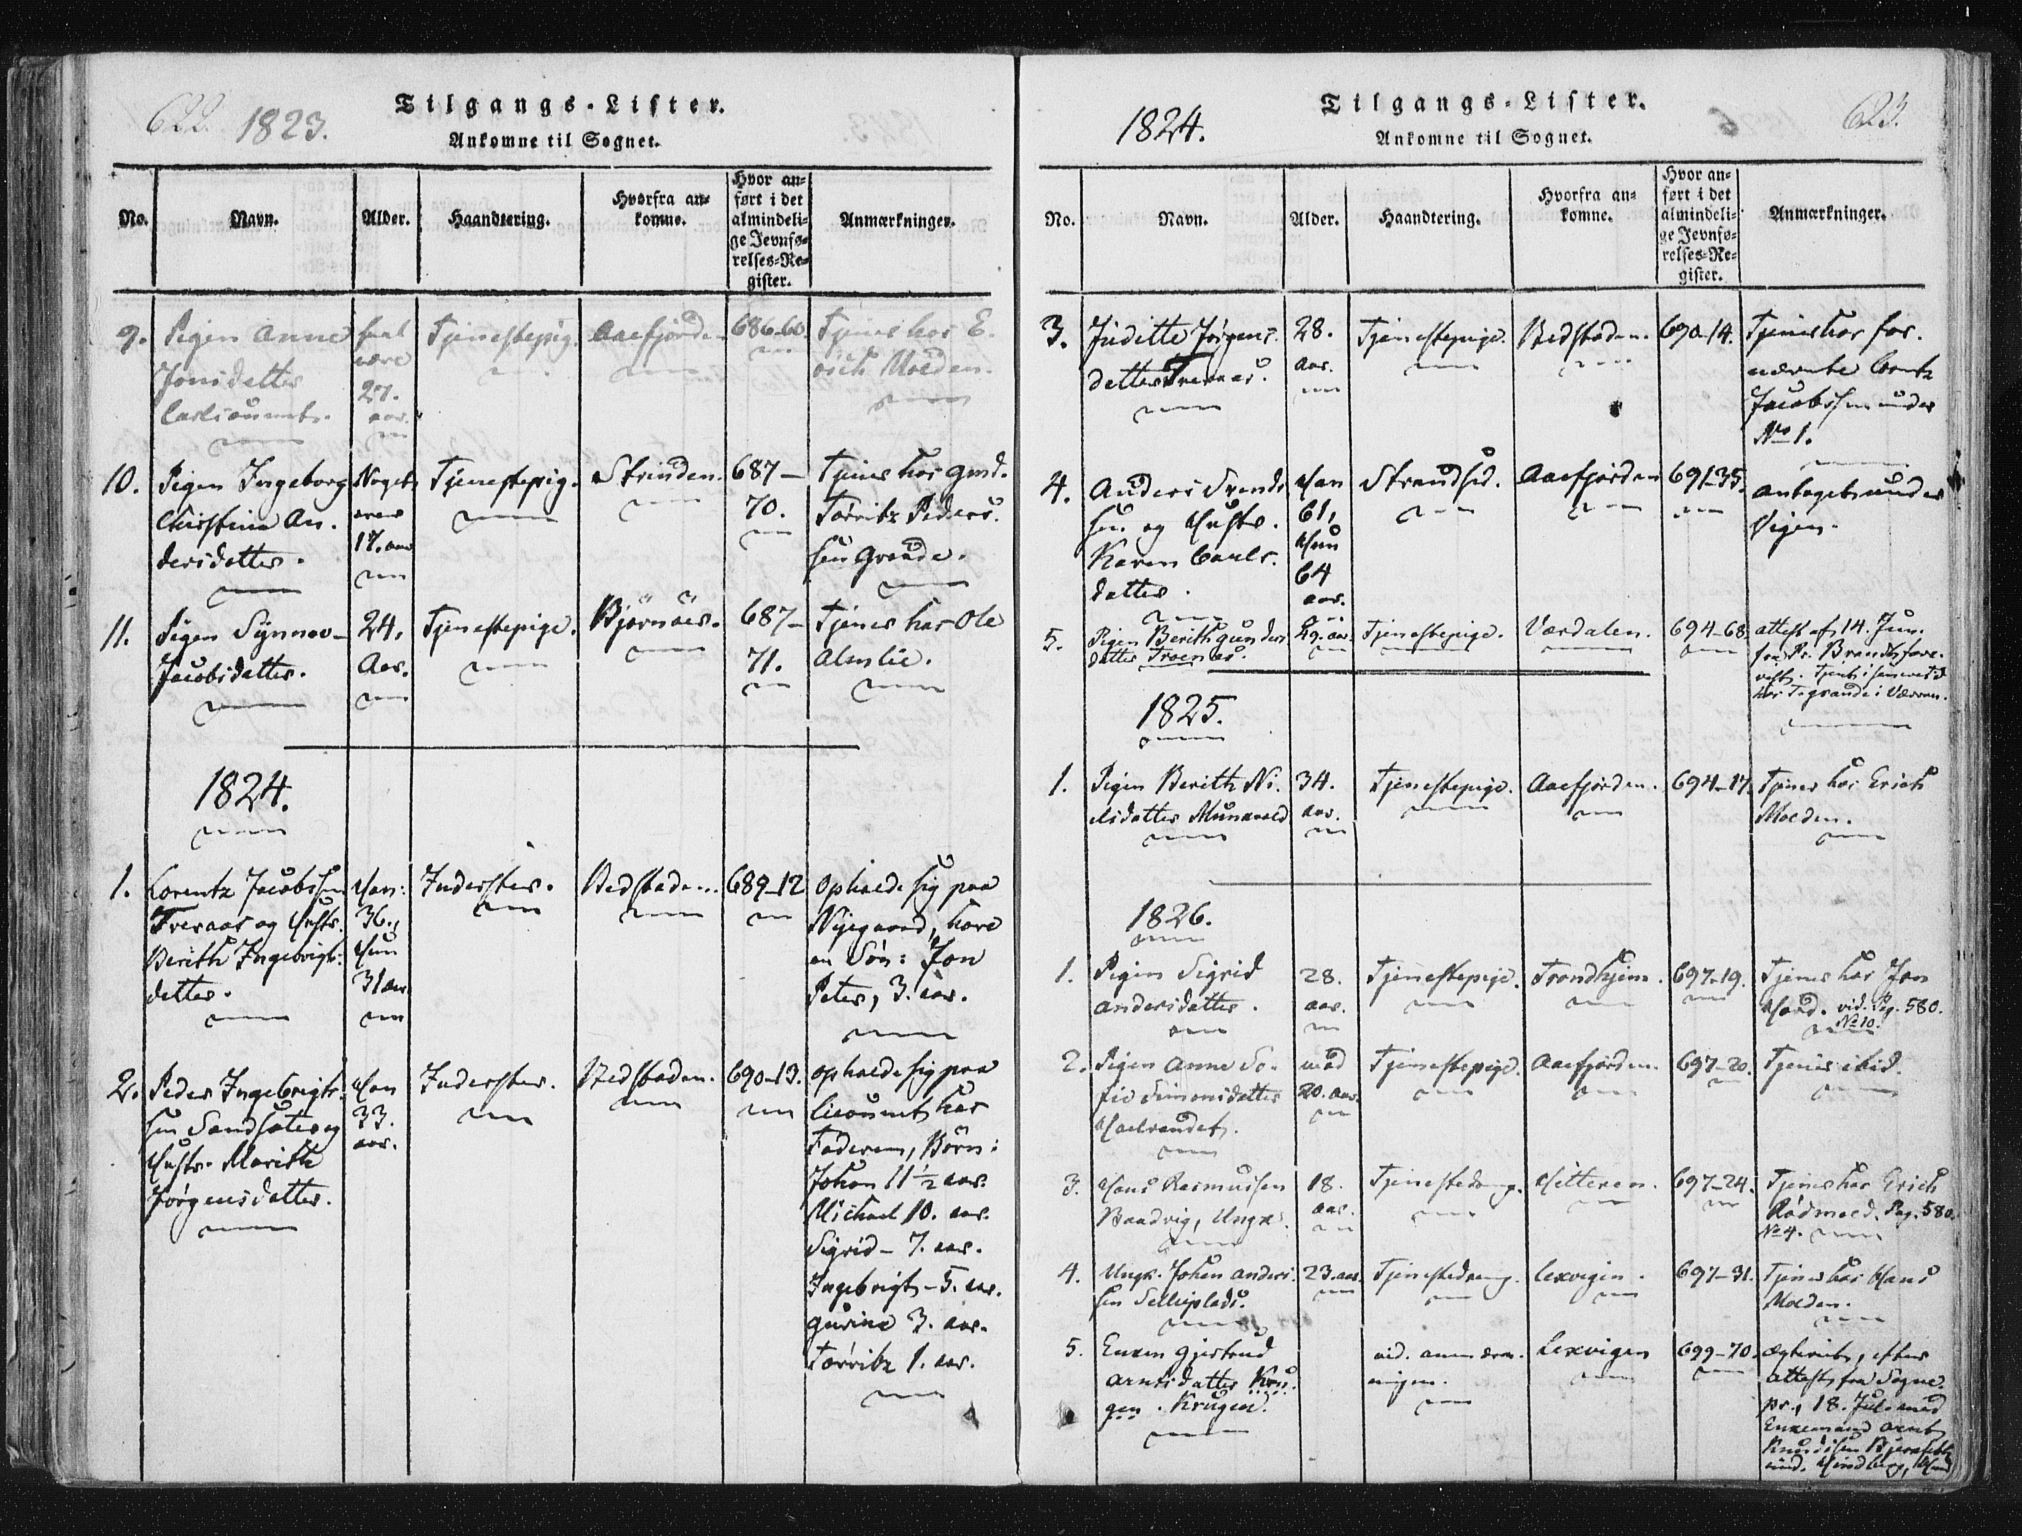 622. 1823.
Tilgangs-Lister.
Ankomne til Sognet.
No.
Navn.
Alder.
Haandtering.
Hvorfra an-
komne.
Hvor an-
ført i det
almindeli-
ge Jevnfø-
relses-Re-
gister.
Anmærkninger.
9. Pigen Anne
Jonsdatter
27.
aar.
Tjenestepig.
Aaefjorden
686-60.
Tjener hos E-
rich Molden.
10. Pigen Ingeborg
Christina An-
dersdatter.
Noget
over
17. aar
Tjenestepig.
Strinden.
687-
70.
Tjener hos Gmd.
Tørritz Peders-
sen Grande.
11. Pigen Synnev-
Jacobsdatter.
24.
Aar.
Tjenestepige.
Bjørnöer.
687-
71.
Tjener hos Ole
Almlie.
1824.
1. Lorentz Jacobssen
Treraas og Hustr.
Berith Ingebrigts-
datter.
Han:
36.
Hun
31 aar
Inderster.
Stedstaden.
689-12
Opholde sig paa
Nygaard, have
en Sön: Jon
Peter, 3. aar.
2. Peder Ingebrigts-
sen Sandsäter og
Hustr. Marith
Jørgensdatter.
Han
33.
aar.
Inderster.
Stedstaden.
690-13.
opholde sig paa
hos
Faderen, Börn:
Johan 11 1/2 aar.
Michael 10. aar.
Sigrid - 7. aar.
Ingebrigt - 5. aar.
Gurine 3. aar.
Tørritz 1. aar.
1824.
Tilgangs-Lister.
Ankomne til Sognet.
623.
No.
Navn.
Alder.
Haandtering.
Hvorfra an-
komne.
Hvor an-
ført i det
almindeli-
ge Jevnfø-
relses-Re-
gister.
Anmærkninger.
3. Juditte Jørgens-
datter Treraas.
28.
aar.
Tjenestepige.
Stedstaden.
690-14.
Tjener hos for-
nævnte Lorentz
Jacobssen under
No 1.
4. Anders Svends-
sen og Hustr.
Karen Carls-
datter.
Han
61,
Hun
64
aar.
Strandsid.
Aaefjorden
691-35.
antaget under
Vigen.
5. Pigen Berith Gunders-
datter Troenæs.
29. aar.
Tjenestepige.
Værdalen.
694-68.
attest af 14. Jun.
fra Pr. Brandt
hos T. Grande i Værran.
1825.
1. Pigen Berith Ni-
elsdatter Munkvold
34.
aar.
Tjenestepige.
Aaefjorden.
694-17.
Tjener hos Erich
Molden.
1826.
1. Pigen Sigrid
Andersdatter.
28.
aar.
Tjenestepige.
Trondhjem.
697-19.
Tjener hos Jon
vid. Pag. 580.
No 10.
2. Pigen Anne So-
fie Simonsdatter
20. aar.
Tjenestepige.
Aaefjorden.
697-20.
Tjener ibid.
3. Hans Rasmussen
Baadvig, Ungk.
18.
aar.
Tjenestedreng.
Hitteren.
697-24.
Tjener hos Erich
Rödmoed. Pag. 580.
No 4.
4. Ungk. Johan Anders-
sen Selleiplads.
23. aar.
Tjenestedreng.
Lexvigen.
697-31.
Tjener hos Hans
Molden.
5. Enken Gjertrud
Arntsdatter Kru-
gen. Krugen.
vid. anmærk-
ningen.
Lexvigen
699-70.
ægteviet, efter
Attest fra Sogne-
pr., 18. Jul. med
Enkemand Arnt
Knudssen